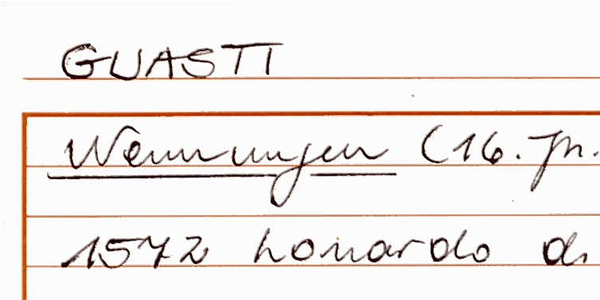 GUASTI
Nennungen (16. Jh.
1572 Lonardo di